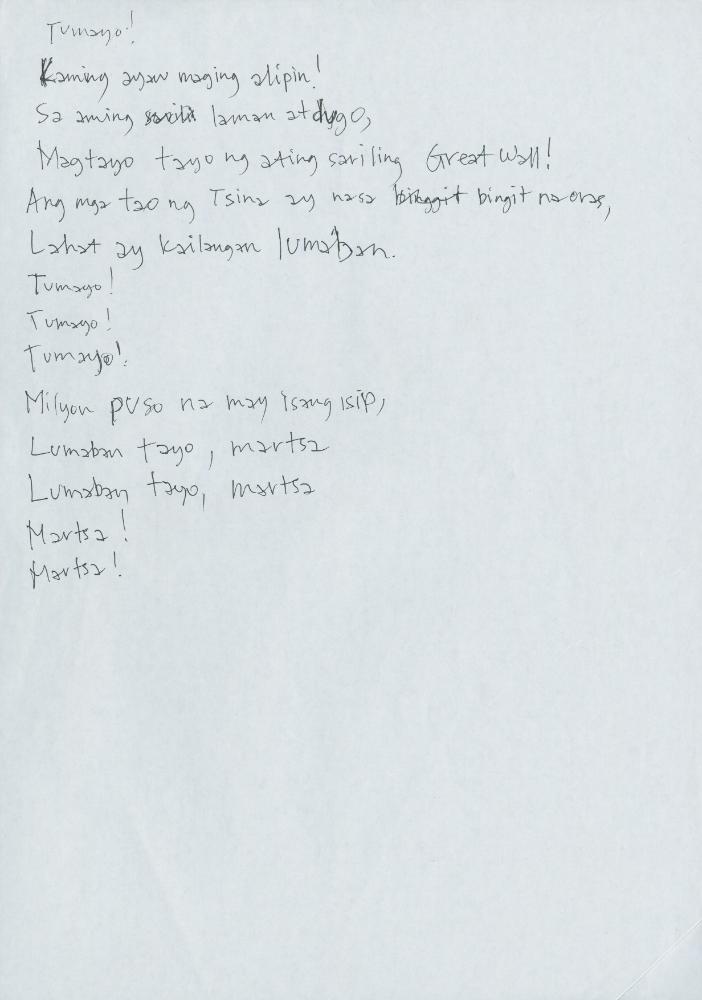 Tumayo!
Kaming ayaw maging alipin!
Sa aming laman at dugo,
Magtayo tayo ng ating sariling Great Wall!
Ang mga tao ng Tsina ay nasa bingit na oras,
Lahat ay kailangan lumaban.
Tumayo!
Tumayo!
Tumayo!
Milyon puso na may isang isip,
Lumaban tayo, martsa
Lumaban tayo, martsa
Martsa!
Martsa!